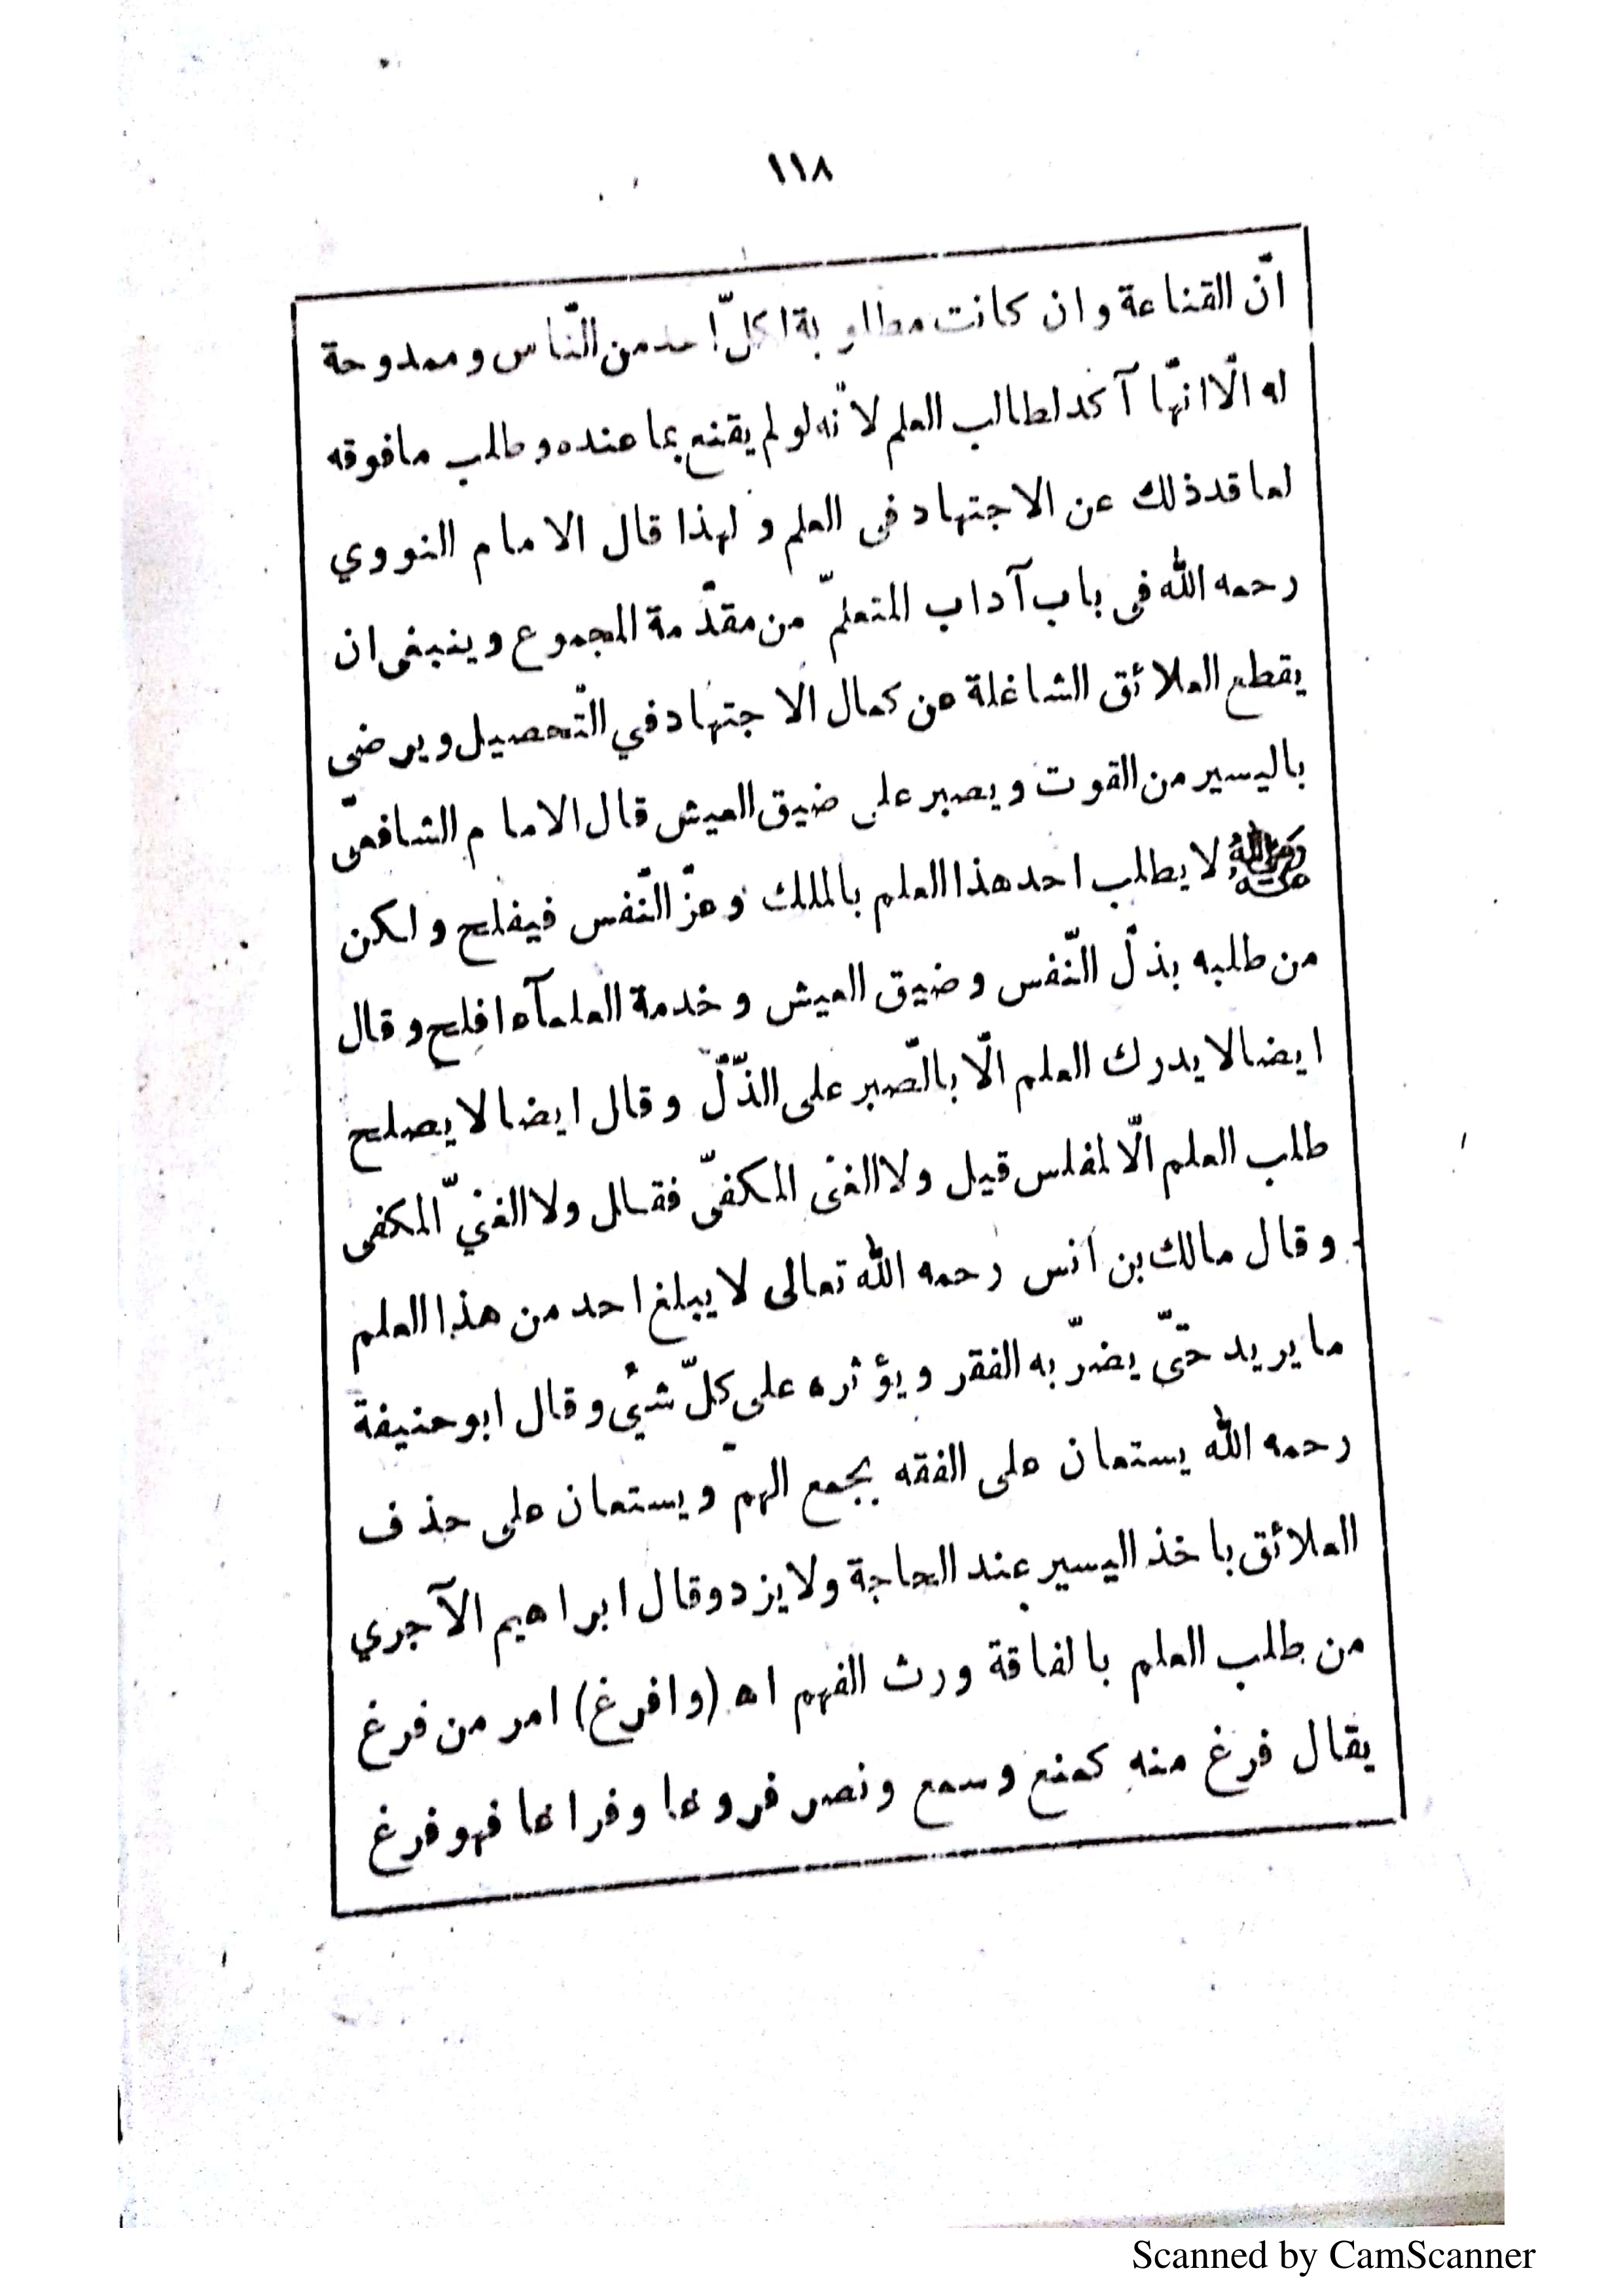 ١١٨
انّ القناعة وان كانت مطلوبة لكلّ احد من النّاس وممدوحة
له الّا انهّا آكد لطالب العلم لانّه لو لم يقنع بما عنده وطلب مافوقه
لعاقه ذلك عن الاجتهاد فى العلم ولهذا قال الامام النووي
رحمه الله فى باب آداب المتعلّم من مقدّمة المجموع وينبغى ان
يقطع العلائق الشاغلة عن كمال الاجتهاد في التّحصيل ويرضى
باليسير من القوت ويصبر على ضيق العيش قال الامام الشافعىّ
رضي الله عنه لا يطلب احد هذا العلم بالملك وعزّ النّفس فيفلح ولكن
من طلبه بذلّ النّفس وضيق العيش وخدمة العلمآء افلح وقال
ايضا لا يدرك العلم الّا بالصّبر على الذّلّ وقال ايضا لا يصلح
طلب العلم الّا لمفلس قيل ولا الغنى المكفىّ فقال ولا الغنيّ المكفى
وقال مالك بن أنس رحمه الله تعالى لا يبلغ احد من هذا العلم
ما يريد حتىّ يضرّ به الفقر ويؤثره على كلّ شيئ وقال ابو حنيفة
رحمه الله يستعان على الفقه بجمع الهمّ ويستعان على حذف
العلائق باخذ اليسير عند الحاجة ولا يزد وقال ابراهيم الآجري
من طلب العلم بالفاقة ورث الفهم اه (وافرغ) امر من فرغ
يقال فرغ منه كمنع وسمع ونصر فروغا وفراغا فهو فرغ
Scanned by CamScanner